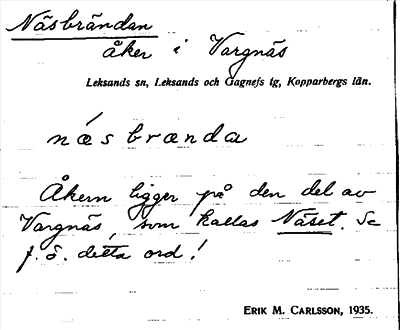 Näsbrändan
åker i Vargnäs
Leksands sn, Leksands och Gagnefs tg, Kopparbergs län.
næ´sbrænda
Åkern ligger på den del av
Vargnäs, som kallas Näset. Se
f. ö. detta ord!
ERIK M. CARLSSON, 1935.